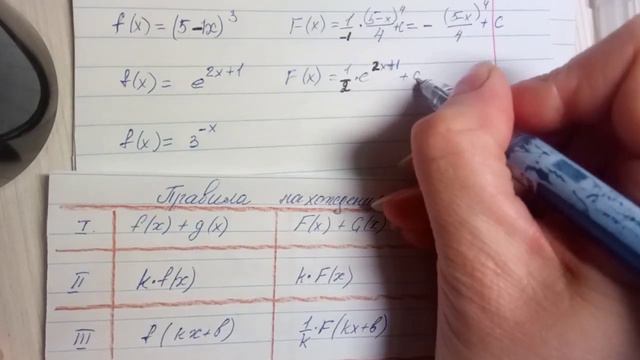 f(x) = (5-1x)³ F(x) = 1/-1 · (5-x)⁴/4 + c = - (5-x)⁴/4 + C
f(x) = e^(2x+1) F(x) = 1/2 · e^(2x+1) + c
f(x) = 3^(-x)
Правила нахождени
I. f(x) + g(x) F(x) + G(x)
II k·f(x) k·F(x)
III f(kx+b) 1/k · F(kx+b)